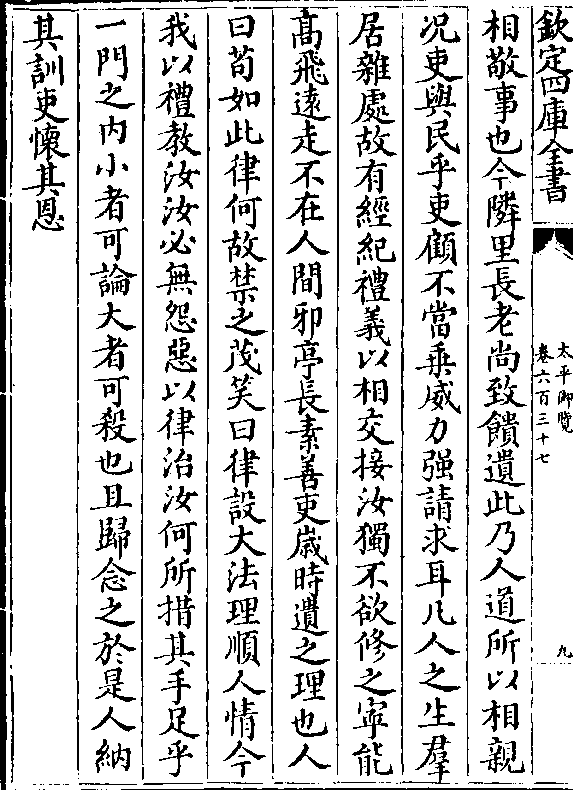 欽定四庫全書
太平御覧
卷六百三十七
九
相敬事也今隣里長老尚致饋遺此乃人道所以相親
况吏與民乎吏顧不當乗威力强請求耳凡人之生羣
居雜處故有經紀禮義以相交接汝獨不欲修之寜能
髙飛逺走不在人間邪亭長素善吏嵗時遺之理也人
曰茍如此律何故禁之茂笑曰律設大法理順人情今
我以禮教汝汝必無怨惡以律治汝何所措其手足乎
一門之内小者可論大者可殺也且歸念之於是人納
其訓吏懷其恩